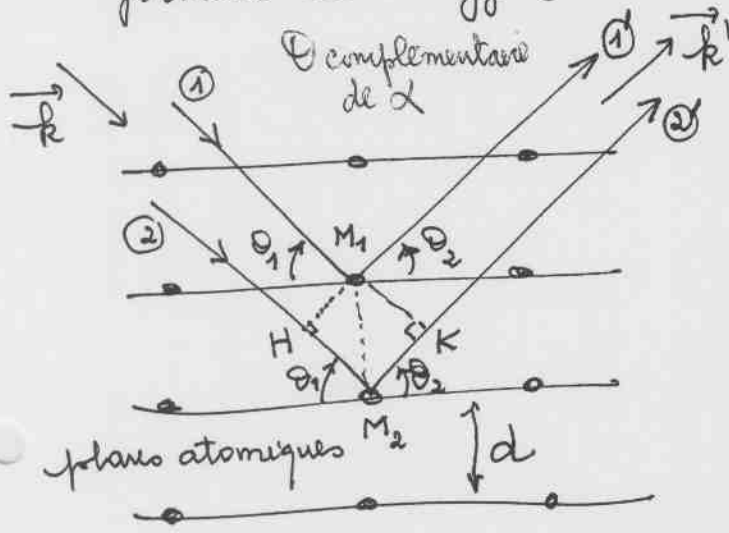 θ complémentaire
de α
①' k'
②'
k ①
②
θ1 M1 θ2
H K
θ1 θ2
M2
plans atomiques d